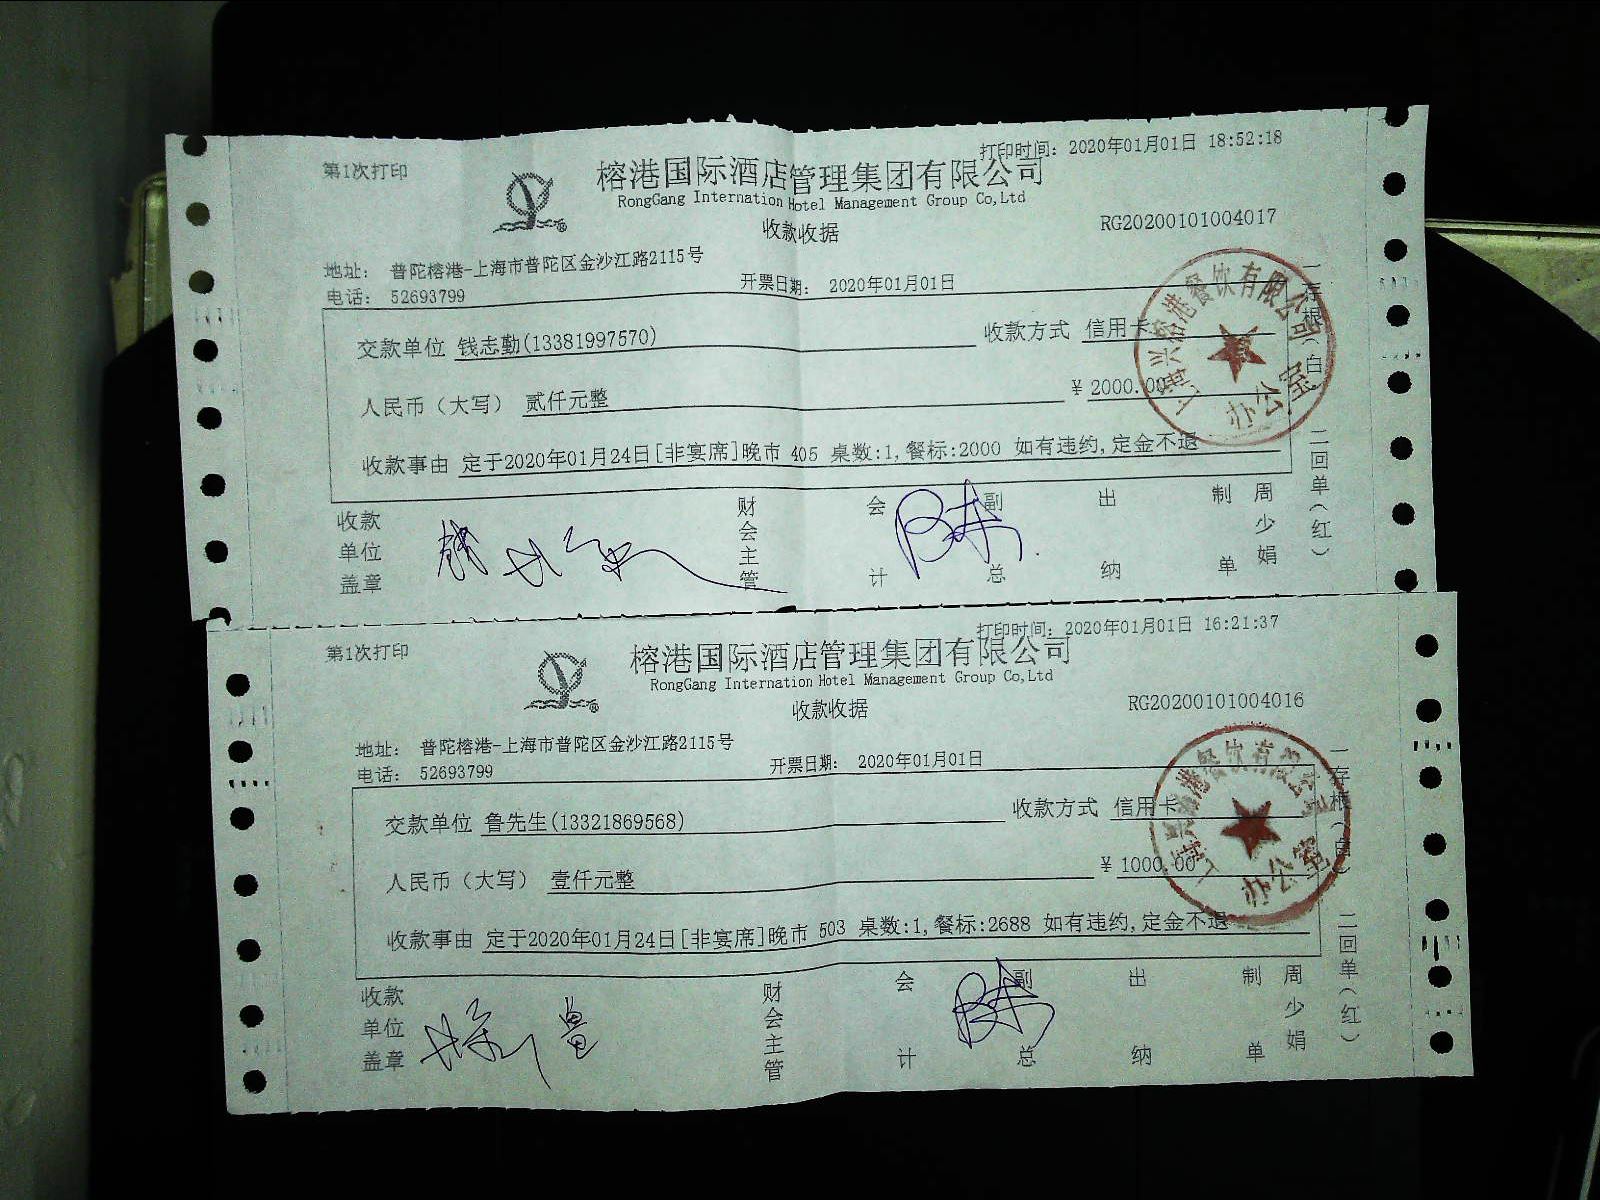 第1次打印
打印时间: 2020年01月01日 18:52:18
榕港国际酒店管理集团有限公司
RongGang Internation Hotel Management Group Co,Ltd
收款收据
RG20200101004017
地址: 普陀榕港-上海市普陀区金沙江路2115号
电话: 52693799
开票日期: 2020年01月01日
交款单位 钱志勤(13381997570)
收款方式 信用卡
人民币（大写） 贰仟元整
¥ 2000.00
收款事由 定于2020年01月24日[非宴席]晚市 405 桌数:1,餐标:2000 如有违约,定金不退
收款单位盖章
财会主管
会计
副总
出纳
制单
周少娟
一存根（白）
二回单（红）
上海兴榕港餐饮有限公司
办公室
第1次打印
打印时间: 2020年01月01日 16:21:37
榕港国际酒店管理集团有限公司
RongGang Internation Hotel Management Group Co,Ltd
收款收据
RG20200101004016
地址: 普陀榕港-上海市普陀区金沙江路2115号
电话: 52693799
开票日期: 2020年01月01日
交款单位 鲁先生(13321869568)
收款方式 信用卡
人民币（大写） 壹仟元整
¥ 1000.00
收款事由 定于2020年01月24日[非宴席]晚市 503 桌数:1,餐标:2688 如有违约,定金不退
收款单位盖章
财会主管
会计
副总
出纳
制单
周少娟
一存根（白）
二回单（红）
上海兴榕港餐饮有限公司
办公室